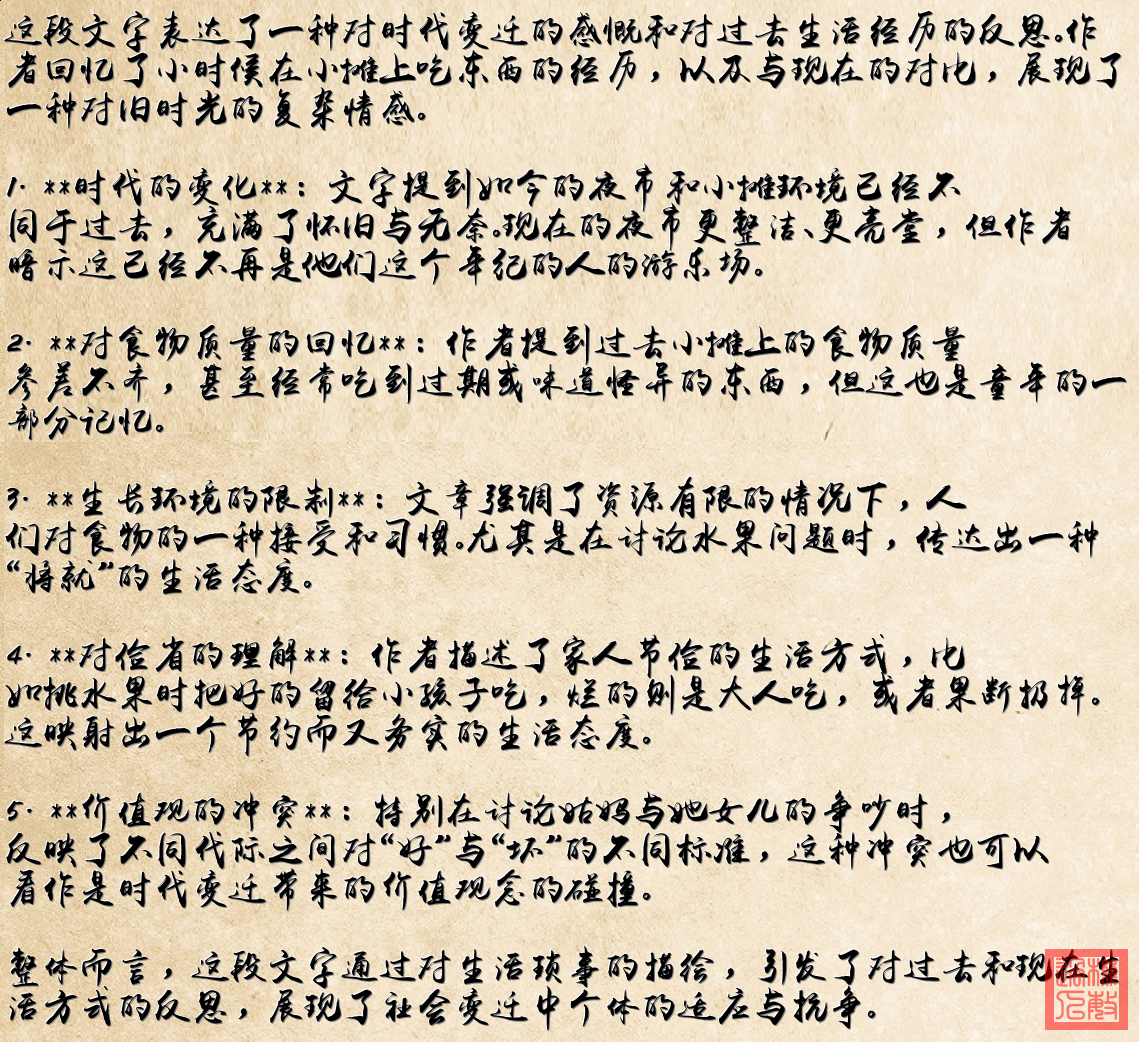 这段文字表达了一种对时代变迁的感慨和对过去生活经历的反思。作
者回忆了小时候在小摊上吃东西的经历，以及与现在的对比，展现了
一种对旧时光的复杂情感。
1. **时代的变化**：文字提到如今的夜市和小摊环境已经不
同于过去，充满了怀旧与无奈。现在的夜市更整洁、更亮堂，但作者
暗示这已经不再是他们这个年纪的人的游乐场。
2. **对食物质量的回忆**：作者提到过去小摊上的食物质量
参差不齐，甚至经常吃到过期或味道怪异的东西，但这也是童年的一
部分记忆。
3. **生长环境的限制**：文章强调了资源有限的情况下，人
们对食物的一种接受和习惯。尤其是在讨论水果问题时，传达出一种
“将就”的生活态度。
4. **对俭省的理解**：作者描述了家人节俭的生活方式，比
如挑水果时把好的留给小孩子吃，烂的则是大人吃，或者果断扔掉。
这映射出一个节约而又务实的生活态度。
5. **价值观的冲突**：特别在讨论姑妈与她女儿的争吵时，
反映了不同代际之间对“好”与“坏”的不同标准，这种冲突也可以
看作是时代变迁带来的价值观念的碰撞。
整体而言，这段文字通过对生活琐事的描绘，引发了对过去和现在生
活方式的反思，展现了社会变迁中个体的适应与抗争。